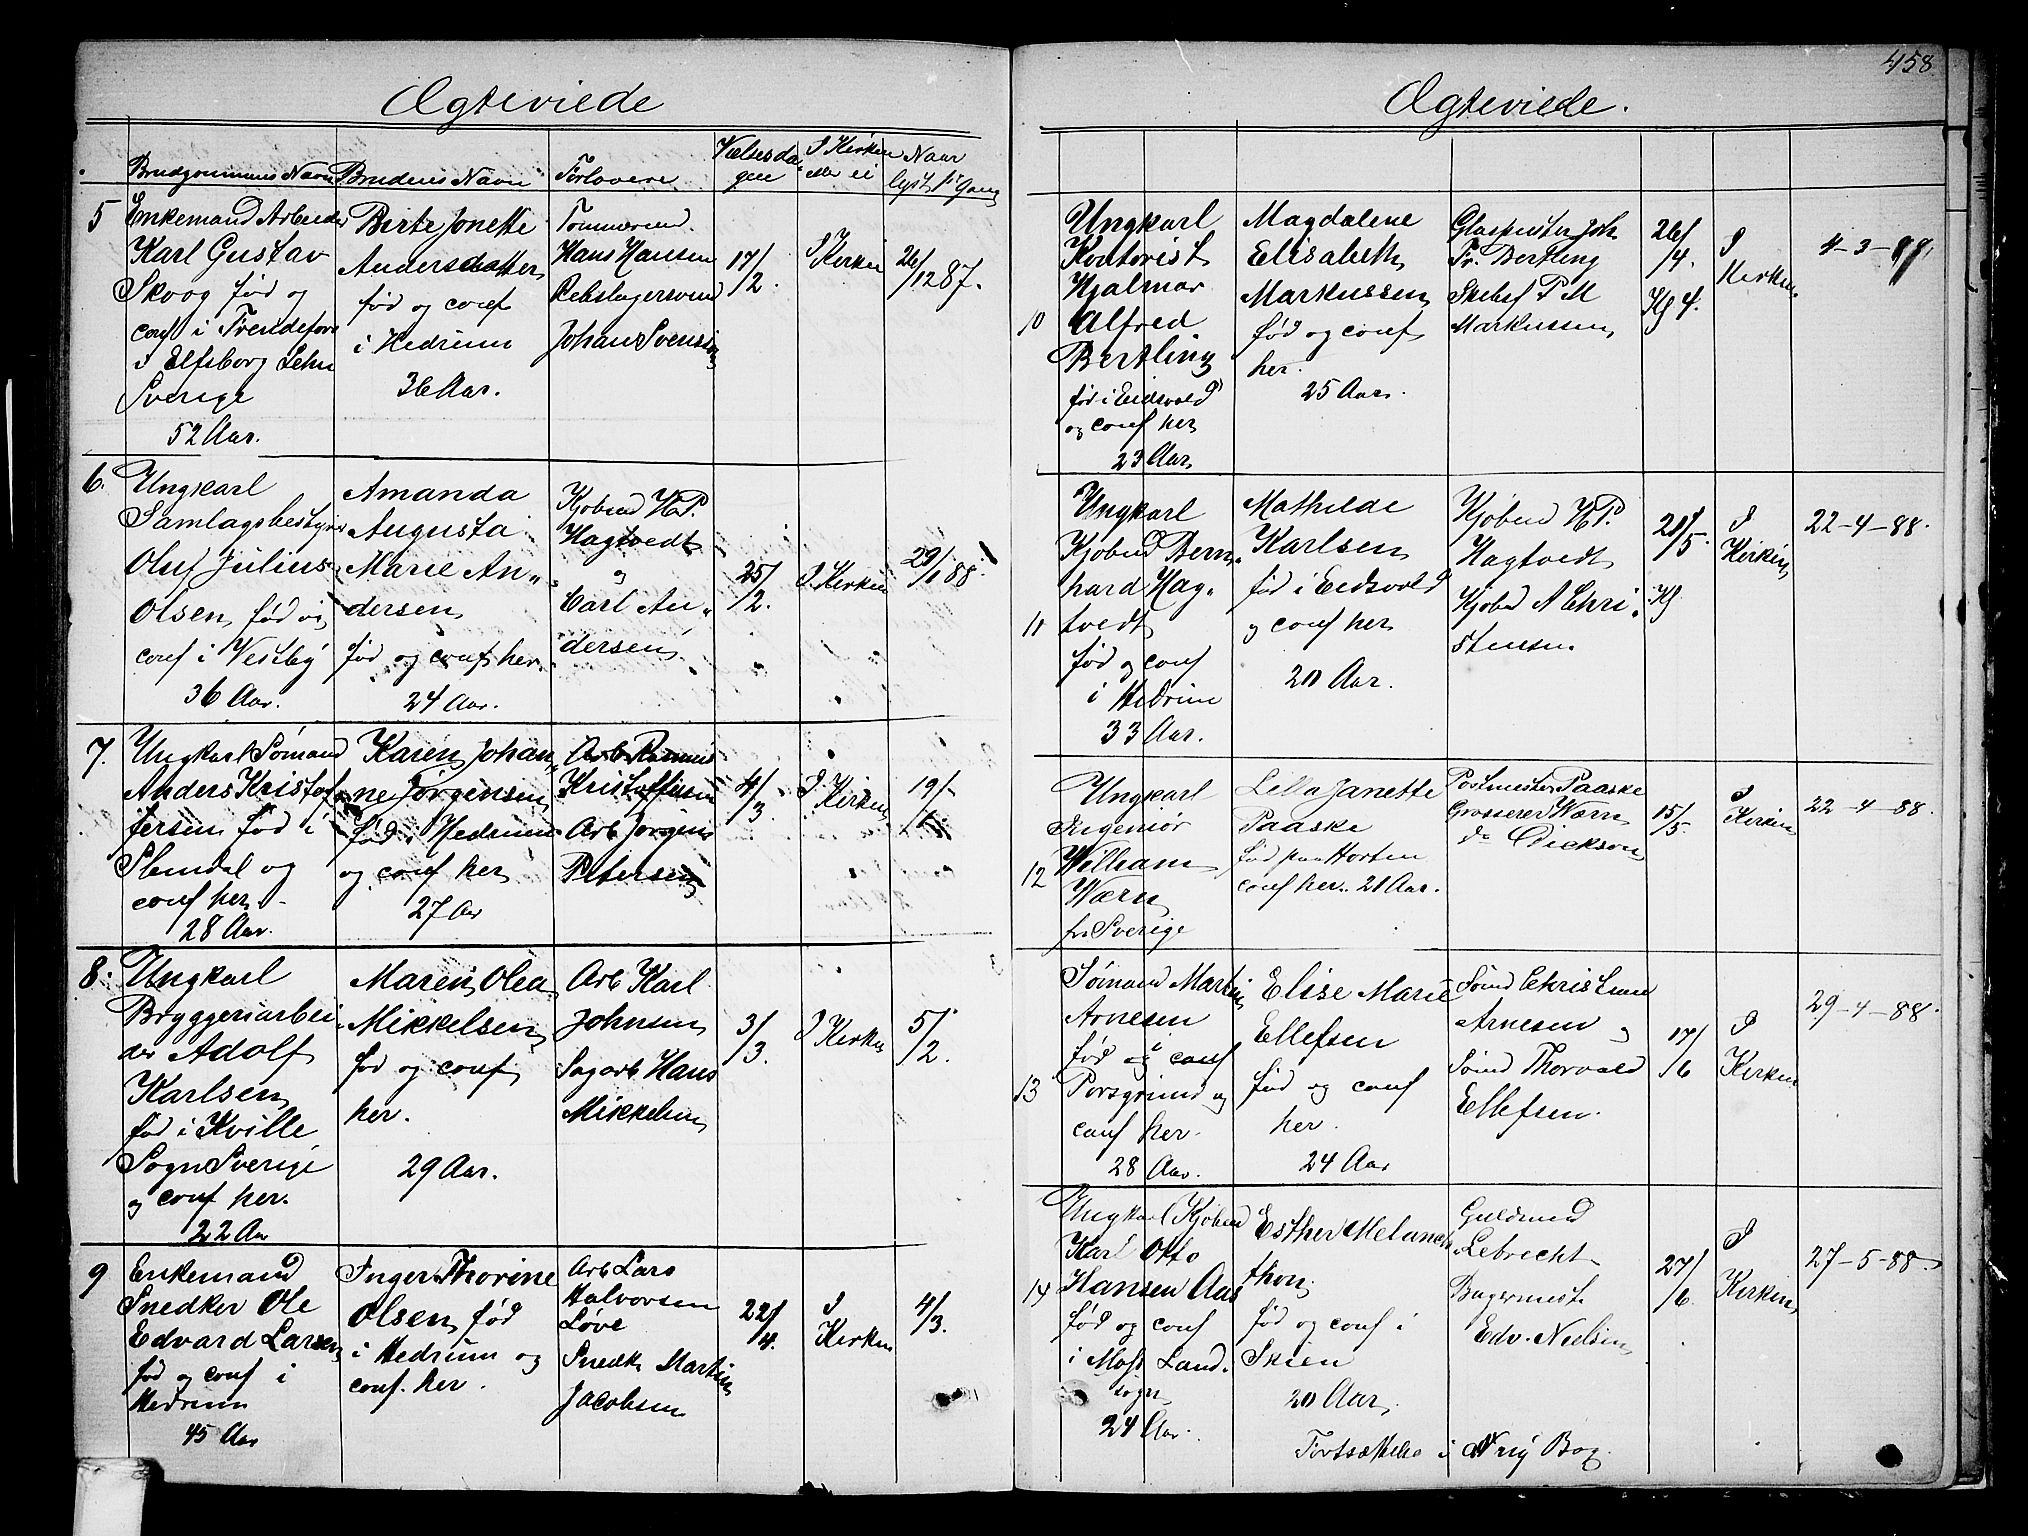 Ægteviede
Brudgommens Navn Brudens Navn Forlovere Vielsesda- gen I Kirken eller ei Naar lyst 1ste Gang
5 Enkemand Arbeider
Karl Gustav
Skoog fød og
conf i
i Elfsborg Lehn
Sverige
52 Aar.
Birte Jonette
Andersdatter
fød og conf
i Hedrum
36 Aar.
Tømmermd.
Hans Hansen
Rebslagersvend
Johan Svensson
17/2.
I Kirken
26/12 87.
6. Ungkarl
Samlagsbestyrer
Oluf Julius
Olsen fød og
conf i Vestby
36 Aar.
Amanda
Augusta
Marie An-
dersen
fød og conf her.
24 Aar.
Kjøbmd H.P.
Hagtvedt
og
Carl An-
dersen
25/2.
I Kirken
29/1 88.
7. Ungkarl Sømand
Anders Kristof
fersen fød i
Slemdal og
conf her
28 Aar.
Karen Johan
ne Jørgensen
fød i Hedrum
og conf her
27 Aar
Arb Rasmus
Kristoffersen
Arb Jørgen
Petersen
4/3.
I Kirken
19/
8. Ungkarl
Bryggeriarbei
der Adolf
Karlsen
fød i Kville
Sogn Sverige
og conf her.
22 Aar
Maren Olea
Mikkelsen
fød og conf
her.
29 Aar.
Arb Karl
Johnsen
Sagarb Hans
Mikkelsen
3/3.
I Kirken
5/2.
9 Enkemand
Snedker Ole
Edvard Larsen
fød og conf i
Hedrum
45 Aar
Inger Thorine
Olsen fød
i Hedrum og
conf. her.
Arb Lars
Halvorsen
Løve
Snedk Martin
Jacobsen
22/4.
I
Kirken
4/3.
458
Ægteviede.
10 Ungkarl
Kontorist
Hjalmar
Alfred
Bertling
fød i Eidsvold
og conf her
23 Aar
Magdalene
Elisabeth
Markussen
fød og conf
her.
25 Aar.
Glasmester Joh
Fr. Bertling
Skibsf P M
Markussen
26/4.
Kl 4.
I
Kirken
4-3-88
11 Ungkarl
Kjøbmd Bern-
hard Hag-
tvedt
fød og conf
i Hedrum
33 Aar.
Mathilde
Karlsen
fød i Eidsvold
og conf her
20 Aar.
Kjøbmd H.P.
Hagtvedt
Kjøbmd A Chri-
stensen
21/5.
Kl
I
Kirken
22-4-88.
12 Ungkarl
Ingeniør
William
Wærn
fra Sverige
Lella Janette
Paaske
fød paa Horten
conf her. 21 Aar.
Postmester Paaske
Grosserer Wærn
do Dickson
15/5.
I
Kirken
22-4-88.
13 Sømand Martin
Arnesen
fød i
Porsgrund og
conf her.
28 Aar.
Elise Marie
Ellefsen
fød og conf
her.
24 Aar
Sømd Christian
Arnesen og
Sømd Thorvald
Ellefsen.
17/6
I
Kirken
29-4-88.
14 Ungkarl Kjøbmd
Karl Otto
Hansen Aas
fød og conf
i Moss Land-
sogn
24 Aar.
Esther Melanch
thon.
fød og conf i
Skien
20 Aar.
Guldsmed
Lebrecht
Bagermest
Edv. Nielsen
27/6.
I
Kirken
27-5-88
Fortsættelse i Ny Bog.